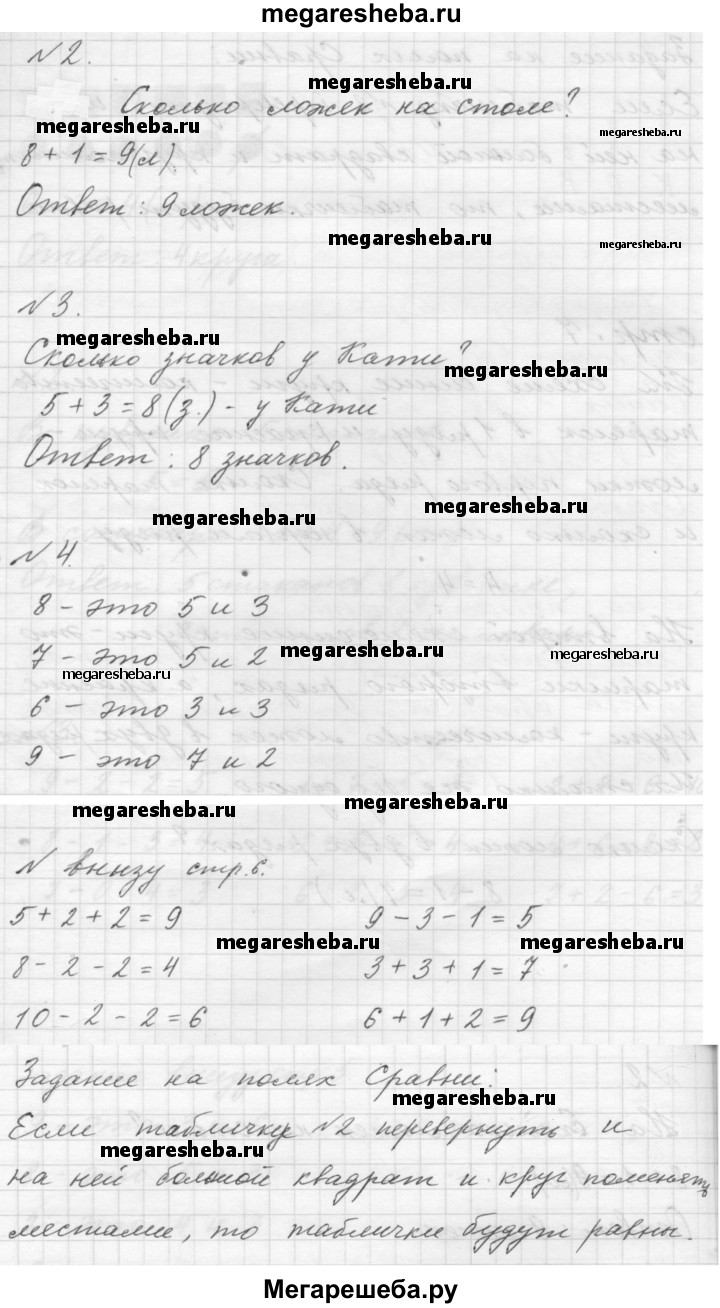 megaresheba.ru
№2.
megaresheba.ru
Сколько ложек на столе?
megaresheba.ru
megaresheba.ru
8 + 1 = 9(л).
Ответ: 9 ложек.
megaresheba.ru
megaresheba.ru
№3.
megaresheba.ru
Сколько значков у Кати?
megaresheba.ru
5 + 3 = 8 (з.) - у Кати
Ответ: 8 значков.
megaresheba.ru
megaresheba.ru
№4.
8 - это 5 и 3
7 - это 5 и 2
megaresheba.ru
megaresheba.ru
megaresheba.ru
6 - это 3 и 3
9 - это 7 и 2
megaresheba.ru
megaresheba.ru
№ внизу стр. 6.
5 + 2 + 2 = 9 9 - 3 - 1 = 5
megaresheba.ru
megaresheba.ru
8 - 2 - 2 = 4 3 + 3 + 1 = 7
10 - 2 - 2 = 6 6 + 1 + 2 = 9
Задание на полях Сравни:
megaresheba.ru
Если табличку №2 перевернуть и
megaresheba.ru
на ней большой квадрат и круг поменять
местами, то таблички будут равны.
Мегарешеба.ру